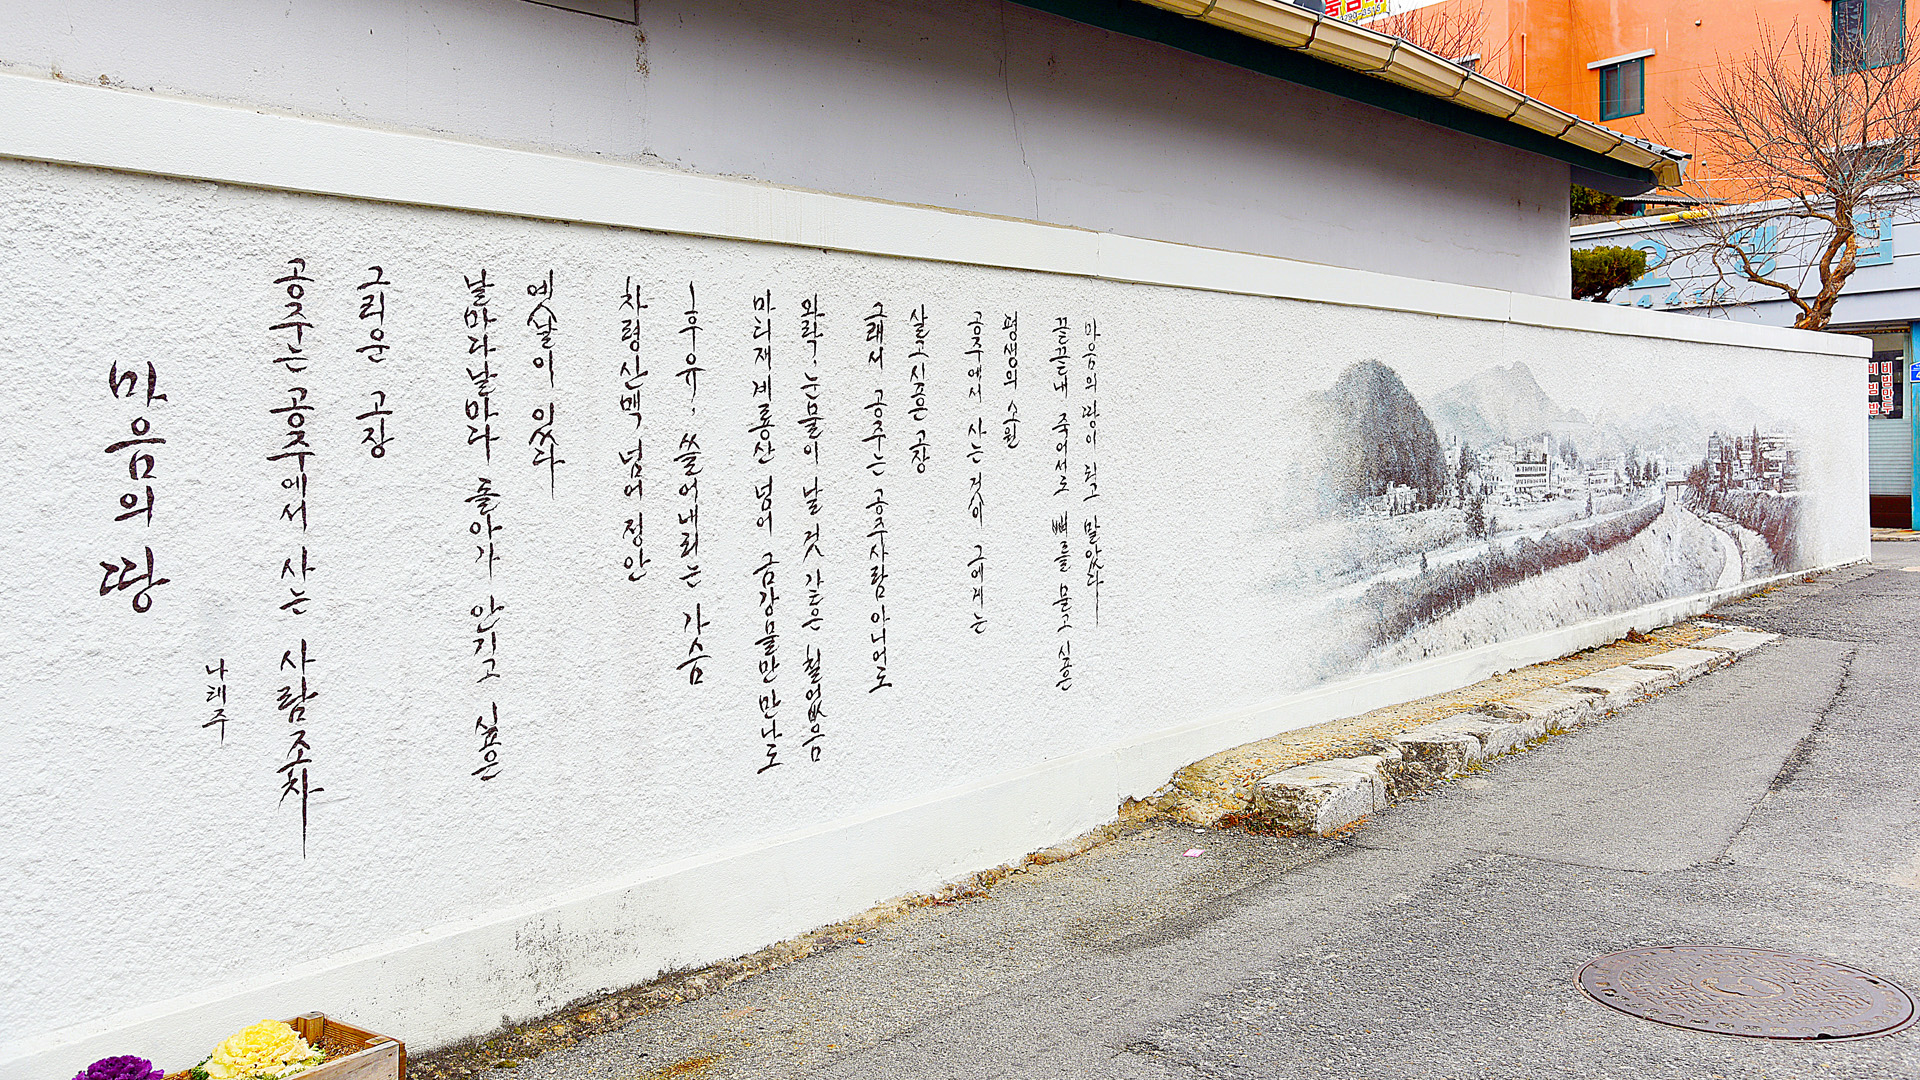 마음의 땅
나태주
공주는 공주에서 사는 사람조차
그리운 고장
날마다 날마다 돌아가 안기고 싶은
옛날이 있다
차령산맥 넘어 정안
후유, 쓸어내리는 가슴
마티재 계룡산 넘어 금강물만 만나도
와락, 눈물이 날 것 같은 철없음
그래서 공주는 공주사람 아니어도
살고 싶은 고장
공주에서 사는 것이 그에게는
평생의 소원
끝끝내 죽어서도 뼈를 묻고 싶은
마음의 땅이 되고 말았다
비빔만두
비빔밥